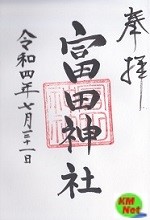 奉拝
富田神社
令和四年七月三十一日
KM
Net